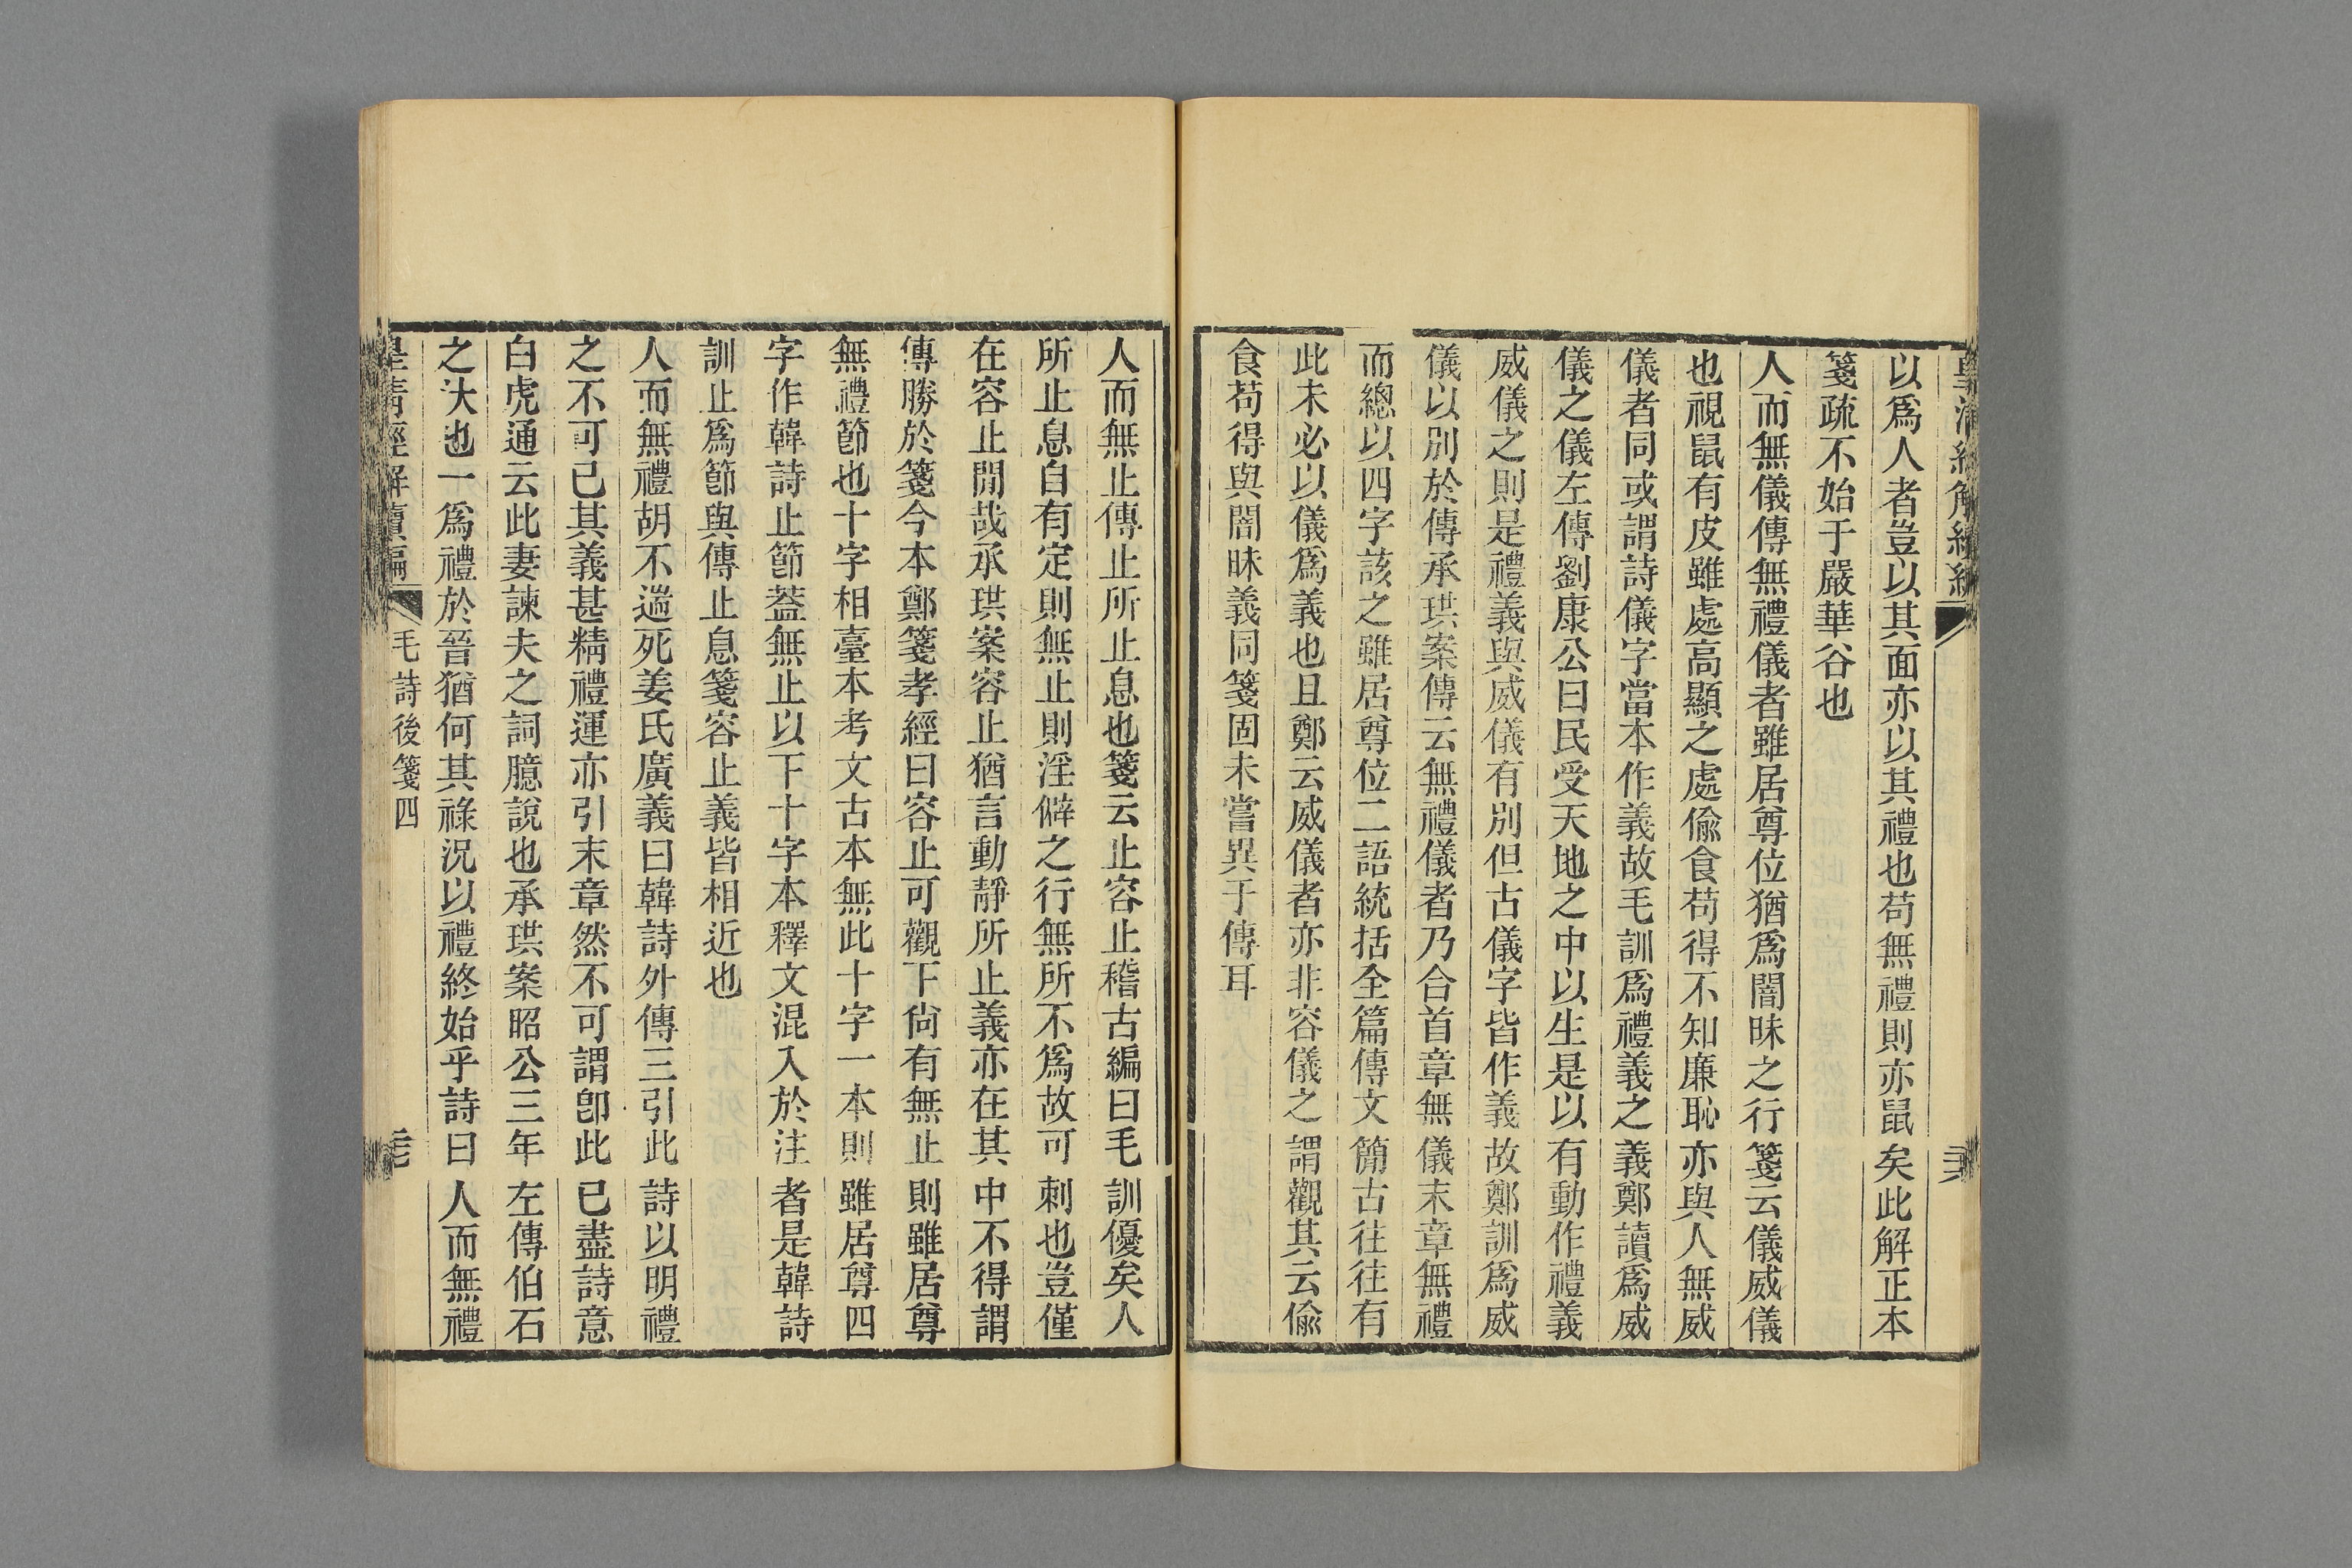 皇清經解續編
以爲人者豈以其面亦以其禮也苟無禮則亦鼠矣此解正本
箋疏不始于嚴華谷也
人而無儀傳無禮儀者雖居尊位猶爲闇昧之行箋云儀威儀
也視鼠有皮雖處高顯之處偸食苟得不知廉恥亦與人無威
儀者同或謂詩儀字當本作義故毛訓爲禮義之義鄭讀爲威
儀之儀左傳劉康公曰民受天地之中以生是以有動作禮義
威儀之則是禮義與威儀有別但古儀字皆作義故鄭訓爲威
儀以別於傳承珙案傳云無禮儀者乃合首章無儀末章無禮
而總以四字該之雖居尊位二語統括全篇傳文簡古往往有
此未必以儀爲義也且鄭云威儀者亦非容儀之謂觀其云偸
食苟得與闇昧義同箋固未嘗異于傳耳
人而無止傳止所止息也箋云止容止稽古編曰毛訓優矣人
所止息自有定則無止則淫僻之行無所不爲故可刺也豈僅
在容止閒哉承珙案容止猶言動靜所止義亦在其中不得謂
傳勝於箋今本鄭箋孝經曰容止可觀下尙有無止則雖居尊
無禮節也十字相臺本考文古本無此十字一本則雖居尊四
字作韓詩止節葢無止以下十字本釋文混入於注者是韓詩
訓止爲節與傳止息箋容止義皆相近也
人而無禮胡不遄死姜氏廣義曰韓詩外傳三引此詩以明禮
之不可已其義甚精禮運亦引末章然不可謂卽此已盡詩意
白虎通云此妻諫夫之詞臆說也承珙案昭公三年左傳伯石
之汏也一爲禮於晉猶何其祿況以禮終始乎詩曰人而無禮
皇清經解續編
毛詩後箋四